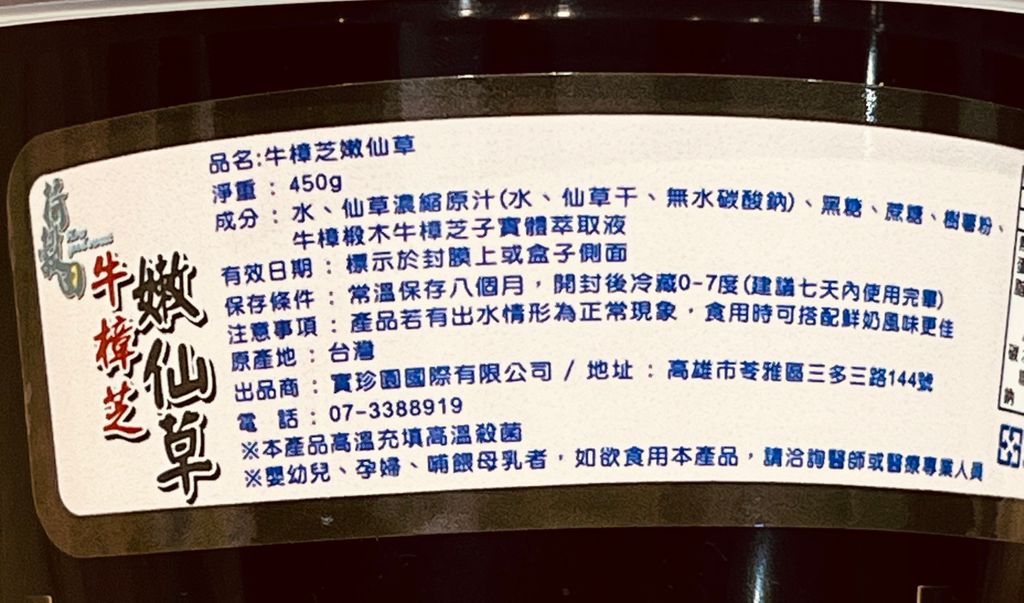 牛樟芝
嫩仙草
品名:牛樟芝嫩仙草
淨重：450g
成分：水、仙草濃縮原汁(水、仙草干、無水碳酸鈉)、黑糖、蔗糖、樹薯粉、
牛樟椴木牛樟芝子實體萃取液
有效日期：標示於封膜上或盒子側面
保存條件：常溫保存八個月，開封後冷藏0-7度(建議七天內使用完畢)
注意事項：產品若有出水情形為正常現象，食用時可搭配鮮奶風味更佳
原產地：台灣
出品商：寶珍園國際有限公司 / 地址：高雄市苓雅區三多三路144號
電 話：07-3388919
※本產品高溫充填高溫殺菌
※嬰幼兒、孕婦、哺餵母乳者，如欲食用本產品，請洽詢醫師或醫療專業人員